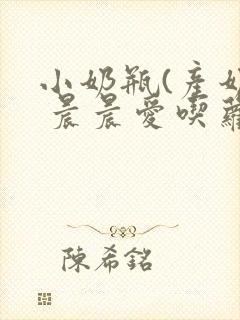 小奶瓶(產奶
晨晨愛喫蘿
陳希銘